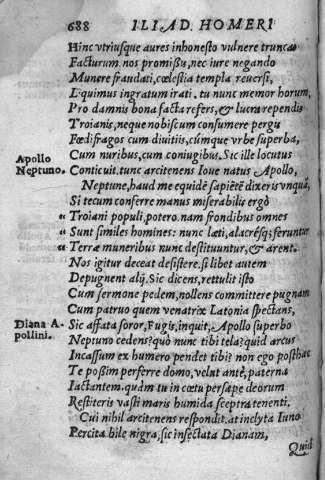 688 ILIAD. HOMERI
Hinc vtriusque aures inhonesto vulnere truncas
Facturum nos promißis, nec iure negando
Munere fraudati, cœlestia templa reuersi,
Linquimus ingratum irati, tu nunc memor horum,
Pro damnis bona facta refers, & lucra rependis
Troianis, neque nobiscum consumere pergis
Fœdifragos cum diuitiis, cúmque vrbe superba,
Cum nuribus, cum coniugibus. Sic ille locutus
Apollo Neptuno.
Conticuit. tunc arcitenens Ioue natus Apollo,
Neptune, haud me equidē sapiētē dixeris vnquā,
Si tecum conferre manus miserabilis ergò
“ Troiani populi, potero. nam frondibus omnes
“ Sunt similes homines: nunc læti, alacrésq; feruntur
“ Terræ muneribus nunc destituuntur, & arent.
Nos igitur deceat desistere. si libet autem
Depugnent alij. Sic dicens, rettulit isto
Cum sermone pedem, nollens committere pugnam
Cum patruo quem venatrix Latonia spectans,
Diana Apollini.
Sic affata soror, Fugis, inquit, Apollo superbo
Neptuno cedens? quò nunc tibi tela? quid arcus
Incassum ex humero pendet tibi? non ego posthac
Te poßim perferre domo, velut antè, paterna
Iactantem. quàm tu in cœtu persæpe deorum
Restiteris vasti maris humida sceptra tenenti.
Cui nihil arcitenens respondit. at inclyta Iuno
Percita bile nigra, sic insectata Dianam,
Quid